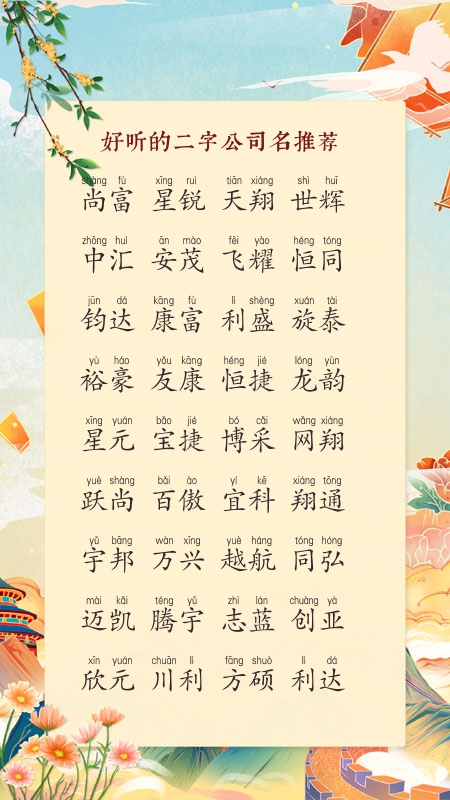 好听的二字公司名推荐
shàng fù xīng ruì tiān xiáng shì huī
尚富 星锐 天翔 世辉
zhōng huì ān mào fēi yào héng tóng
中汇 安茂 飞耀 恒同
jūn dá kāng fù lì shèng xuán tài
钧达 康富 利盛 旋泰
yù háo yǒu kāng héng jié lóng yùn
裕豪 友康 恒捷 龙韵
xīng yuán bǎo jié bó cǎi wǎng xiáng
星元 宝捷 博采 网翔
yuè shàng bǎi ào yí kē xiáng tōng
跃尚 百傲 宜科 翔通
yǔ bāng wàn xīng yuè háng tóng hóng
宇邦 万兴 越航 同弘
mài kǎi téng yǔ zhì lán chuàng yà
迈凯 腾宇 志蓝 创亚
xīn yuán chuān lì fāng shuò lì dá
欣元 川利 方硕 利达